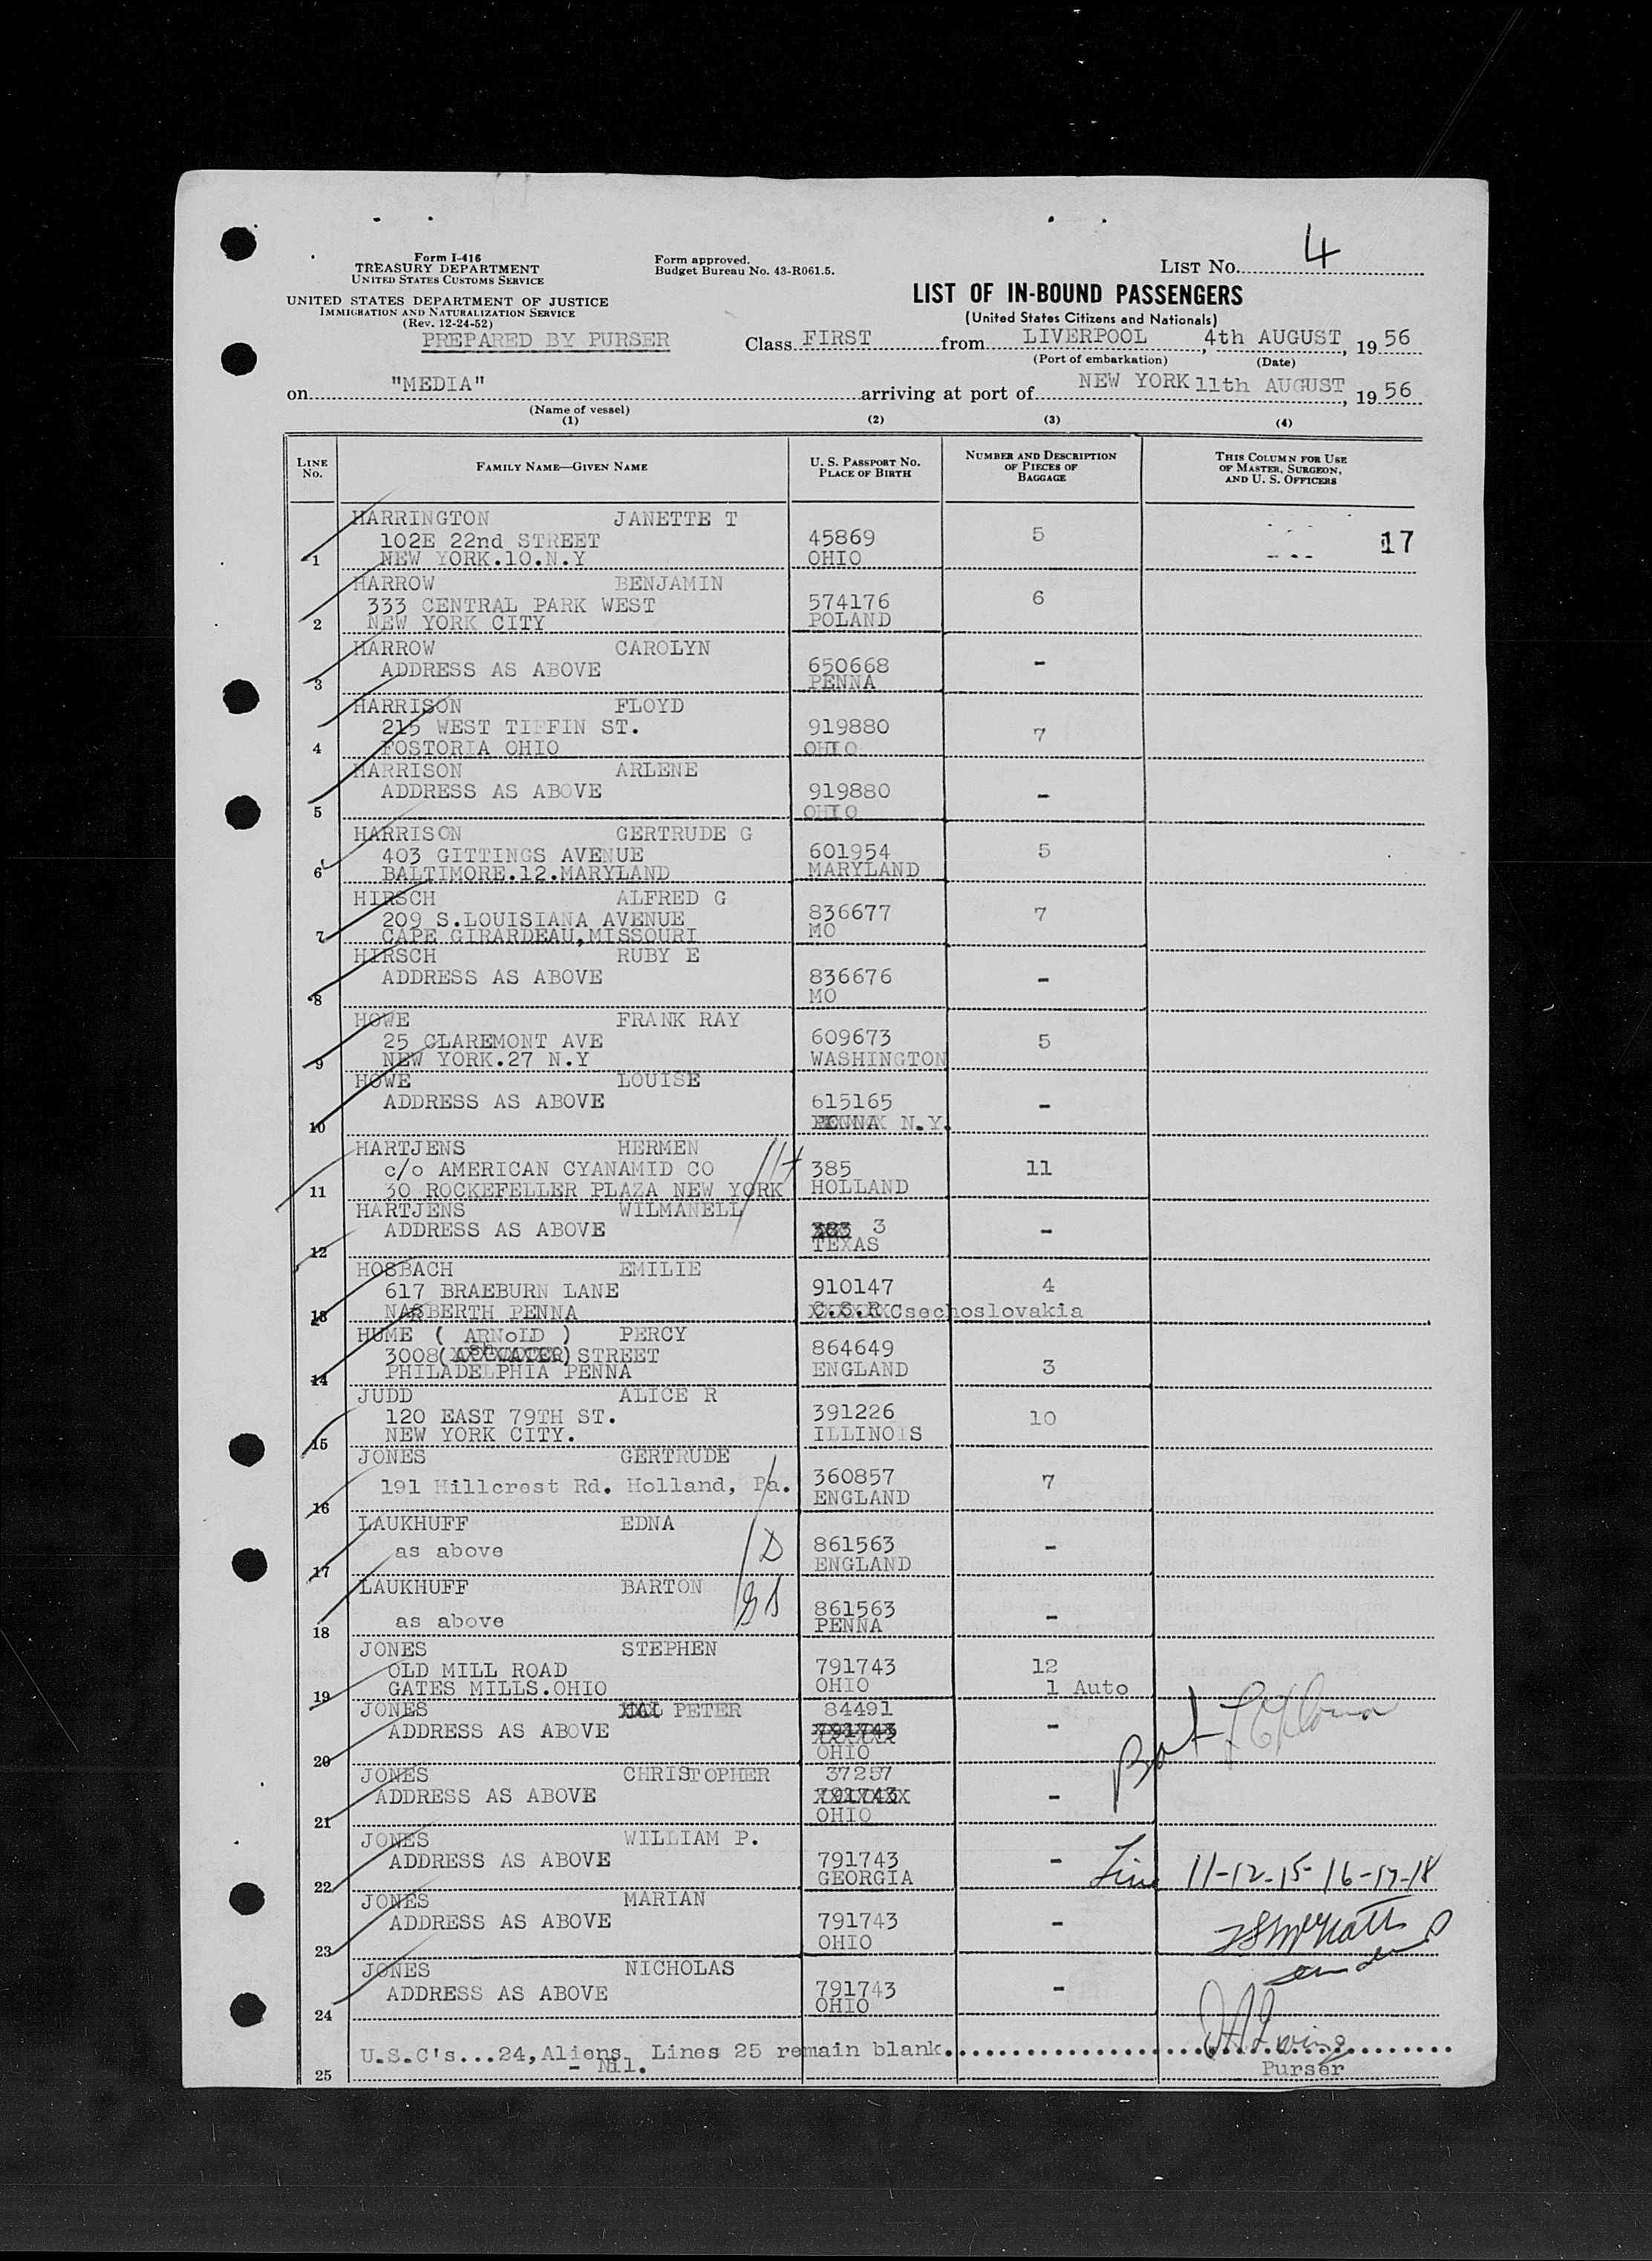 4
Form I-416
TREASURY DEPARTMENT
UNITED STATES CUSTOMS SERVICE
UNITED STATES DEPARTMENT OF JUSTICE
IMMIGRATION AND NATURALIZATION SERVICE
(Rev. 12-24-52)
PREPARED BY PURSER
Form approved.
Budget Bureau No. 43-R061.5.
LIST NO.
LIST OF IN-BOUND PASSENGERS
(United States Citizens and Nationals)
Class FIRST from LIVERPOOL, 4th AUGUST, 19 56
(Port of embarkation) (Date)
on "MEDIA" arriving at port of NEW YORK 11th AUGUST, 19 56
(Name of vessel)
(1) (2) (3) (4)
LINE No. FAMILY NAME—GIVEN NAME U. S. PASSPORT No. PLACE OF BIRTH NUMBER AND DESCRIPTION OF PIECES OF BAGGAGE THIS COLUMN FOR USE OF MASTER, SURGEON, AND U. S. OFFICERS
HARRINGTON JANETTE T
102E 22nd STREET 45869 5 17
1 NEW YORK.10.N.Y OHIO
HARROW BENJAMIN
333 CENTRAL PARK WEST 574176 6
2 NEW YORK CITY POLAND
HARROW CAROLYN
ADDRESS AS ABOVE 650668 -
3 PENNA
HARRISON FLOYD
215 WEST TIFFIN ST. 919880 7
4 FOSTORIA OHIO OHIO
HARRISON ARLENE
ADDRESS AS ABOVE 919880 -
5 OHIO
HARRISON GERTRUDE G
403 GITTINGS AVENUE 601954 5
6 BALTIMORE.12.MARYLAND MARYLAND
HIRSCH ALFRED G
209 S.LOUISIANA AVENUE 836677 7
7 CAPE GIRARDEAU,MISSOURI MO
HIRSCH RUBY E
ADDRESS AS ABOVE 836676 -
8 MO
HOWE FRANK RAY
25 CLAREMONT AVE 609673 5
9 NEW YORK.27 N.Y WASHINGTON
HOWE LOUISE
ADDRESS AS ABOVE 615165 -
10 N.Y.
HARTJENS HERMEN
c/o AMERICAN CYANAMID CO 385 11
11 30 ROCKEFELLER PLAZA NEW YORK HOLLAND
HARTJENS WILMANELL
ADDRESS AS ABOVE 383 3 -
12 TEXAS
HOSBACH EMILIE
617 BRAEBURN LANE 910147 4
13 NARBERTH PENNA C.S.R Csechoslovakia
HUME ( ARNOLD ) PERCY
3008 STREET 864649
14 PHILADELPHIA PENNA ENGLAND 3
JUDD ALICE R
120 EAST 79TH ST. 391226 10
15 NEW YORK CITY. ILLINOIS
JONES GERTRUDE
191 Hillcrest Rd. Holland, Pa. 360857 7
16 ENGLAND
LAUKHUFF EDNA
as above 861563 -
17 ENGLAND
LAUKHUFF BARTON
as above 861563 -
18 PENNA
JONES STEPHEN
OLD MILL ROAD 791743 12
19 GATES MILLS.OHIO OHIO 1 Auto
JONES PETER 84491
ADDRESS AS ABOVE 791743 -
20 OHIO
JONES CHRISTOPHER 37257
ADDRESS AS ABOVE 791743 -
21 OHIO
JONES WILLIAM P.
ADDRESS AS ABOVE 791743 - Line 11-12-15-16-17-18
22 GEORGIA
JONES MARIAN
ADDRESS AS ABOVE 791743 -
23 OHIO
JONES NICHOLAS
ADDRESS AS ABOVE 791743 -
24 OHIO
U.S.C's...24,Aliens Lines 25 remain blank
- Nil. Purser
25